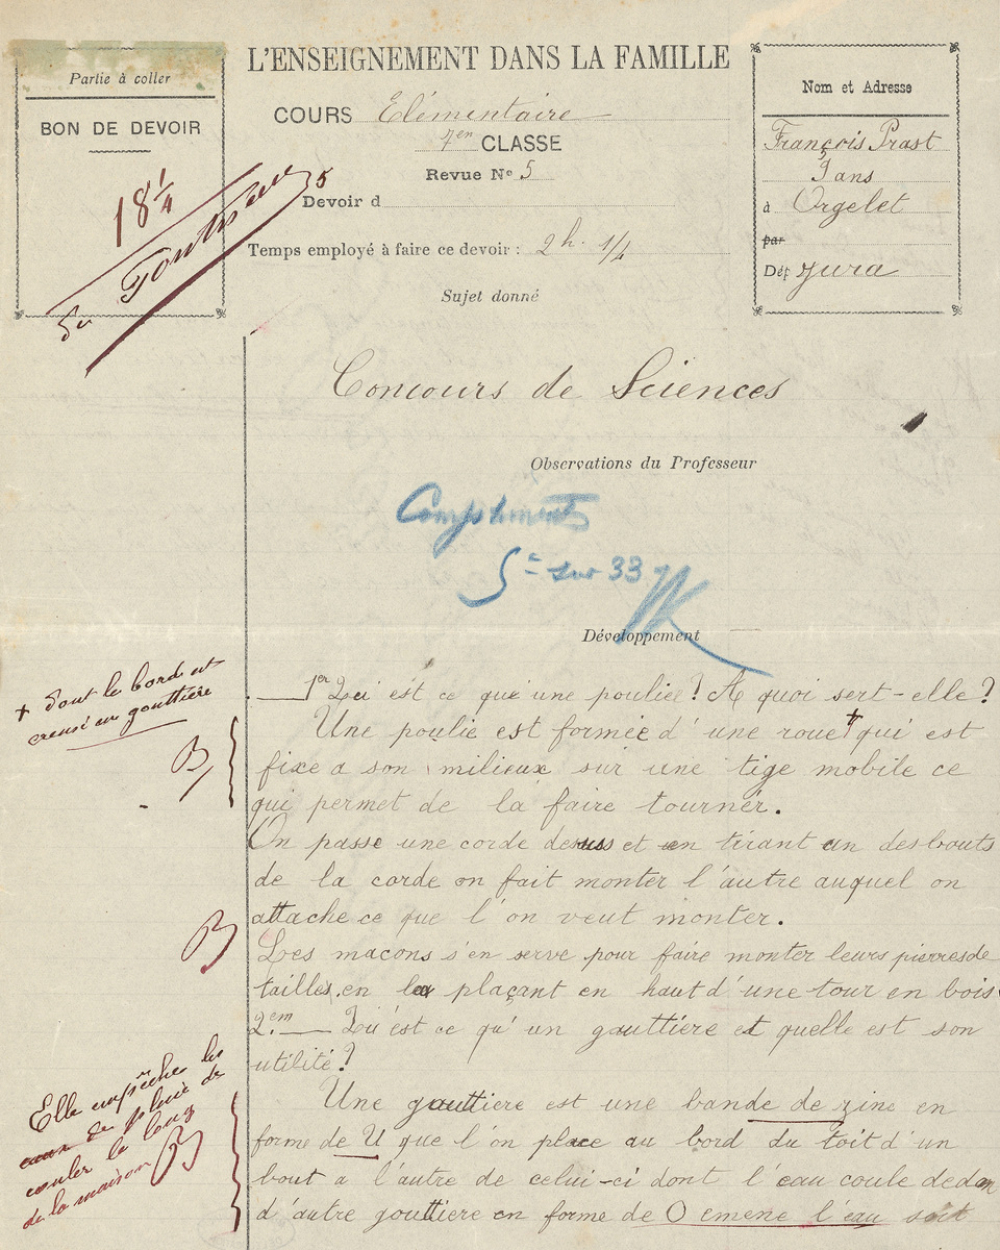 Partie à coller
BON DE DEVOIR
18 1/4
L'ENSEIGNEMENT DANS LA FAMILLE
COURS Elémentaire
7en CLASSE
Revue No 5
Devoir d
Temps employé à faire ce devoir : 2 h. 1/4
Sujet donné
Nom et Adresse
François Prast
9 ans
à Orgelet
par
Dép Jura
Concours de Sciences
Observations du Professeur
Compliments
5e sur 33
Développement
+ dont le bord est
creusé en gouttière
1er Qu'est ce que une poulie? A quoi sert-elle?
Une poulie est formée d'une roue + qui est
B
fixe a son milieux sur une tige mobile ce
qui permet de la faire tourner.
On passe une corde dessus et en tirant un des bouts
de la corde on fait monter l'autre auquel on
attache ce que l'on veut monter.
B
Les macons s'en serve pour faire monter leurs pierres de
tailles en la plaçant en haut d'une tour en bois
2.em Qu'est ce qu'un gouttière et quelle est son
utilité?
Elle empêche les
eaux de pluie de
couler le long
de la maison B
Une gouttiere est une bande de zinc en
forme de U que l'on place au bord du toit d'un
bout a l'autre de celui-ci dont l'eau coule dedan
d'autre gouttiere en forme de O emene l'eau soit